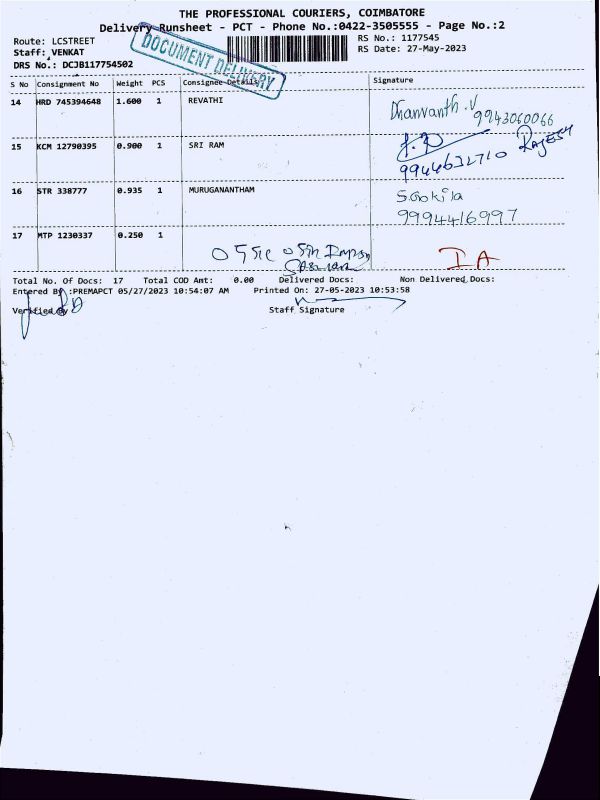 THE PROFESSIONAL COURIERS, COIMBATORE
Delivery Runsheet - PCT - Phone No.:0422-3505555 - Page No.:2
Route: LCSTREET
Staff: VENKAT
DRS No.: DCJB117754502
DOCUMENT DELIVERY
RS No.: 1177545
RS Date: 27-May-2023
S No Consignment No Weight PCS Consignee Details Signature
14 HRD 745394648 1.600 1 REVATHI Dhanvanth.V
9943060066
15 KCM 12790395 0.900 1 SRI RAM RAJESH
9944632710
16 STR 338777 0.935 1 MURUGANANTHAM S.Gokila
9994416997
17 MTP 1230337 0.250 1 IA
Total No. Of Docs: 17 Total COD Amt: 0.00 Delivered Docs: Non Delivered Docs:
Entered By :PREMAPCT 05/27/2023 10:54:07 AM Printed On: 27-05-2023 10:53:58
Verified By Staff Signature